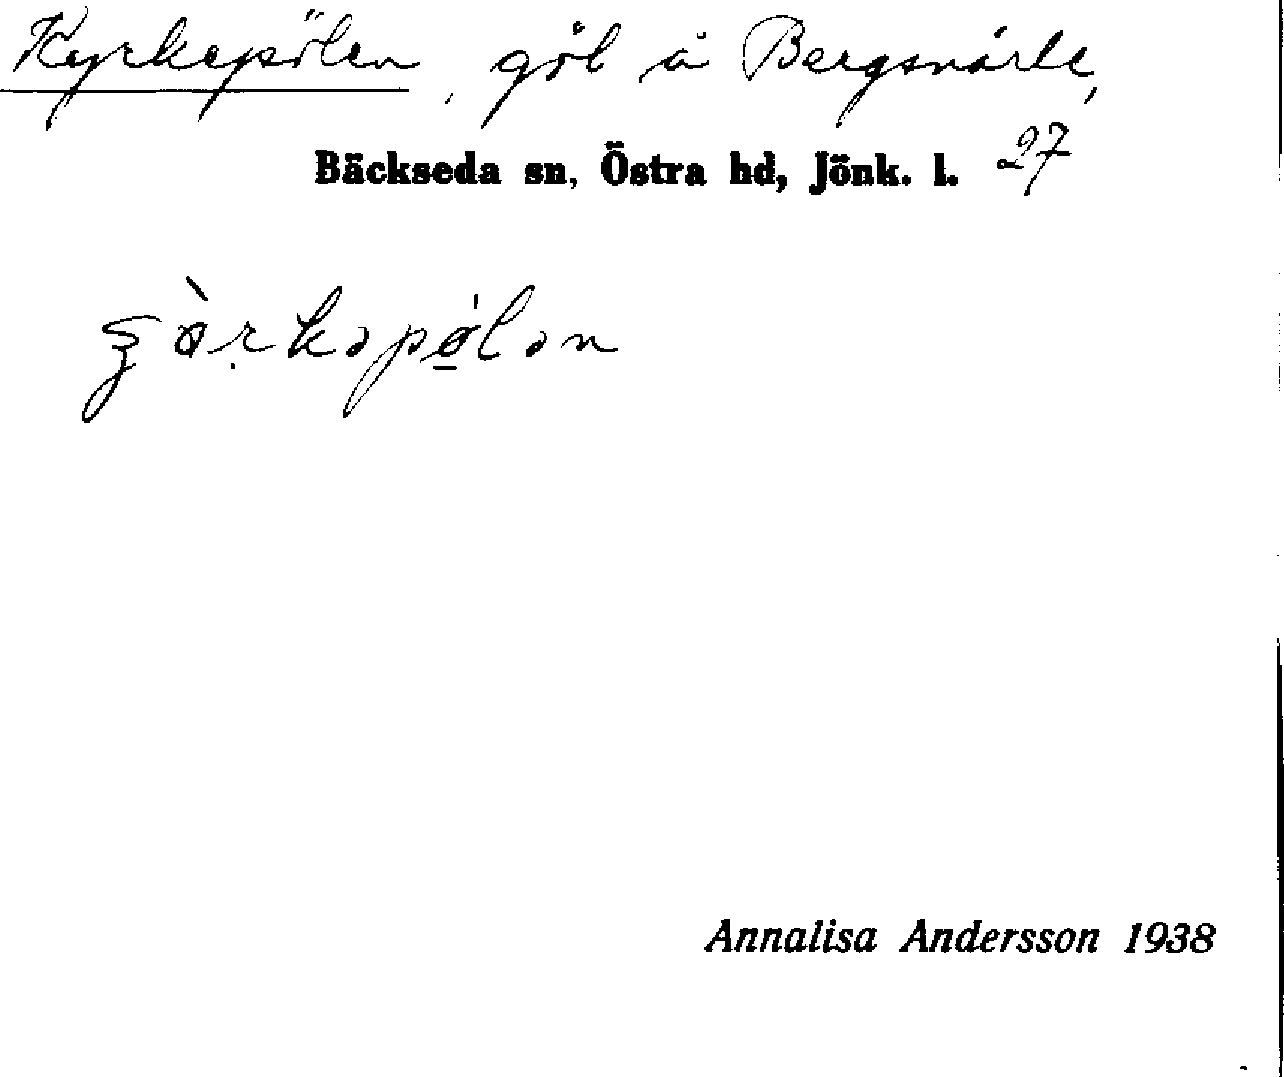 Kyrkepölen, göl å Bergsnärle,
Bäckseda sn, Östra hd, Jönk. l. 27
Annalisa Andersson 1938